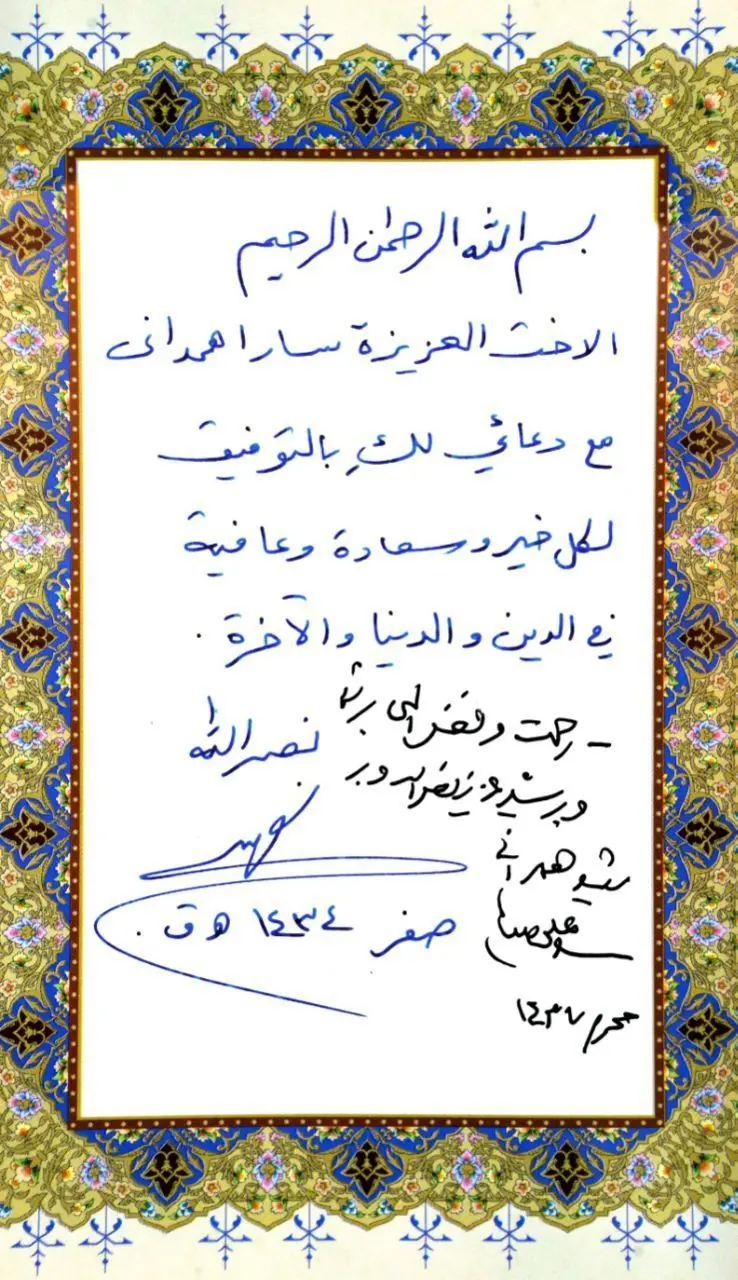 بسم الله الرحمٰن الرحيم
الاخت العزيزة سارا همدانى
مع دعائي لكِ بالتوفيق
لكل خير وسعادة وعافية
في الدين والدنيا والآخرة.
نصر الله
صفر ١٤٣٤ ه ق.
- رحمت و فضل الهى بر شما
و بر سيد عزيز نصر الله و بر
شهید همدانی
محرم ١٤٣٧